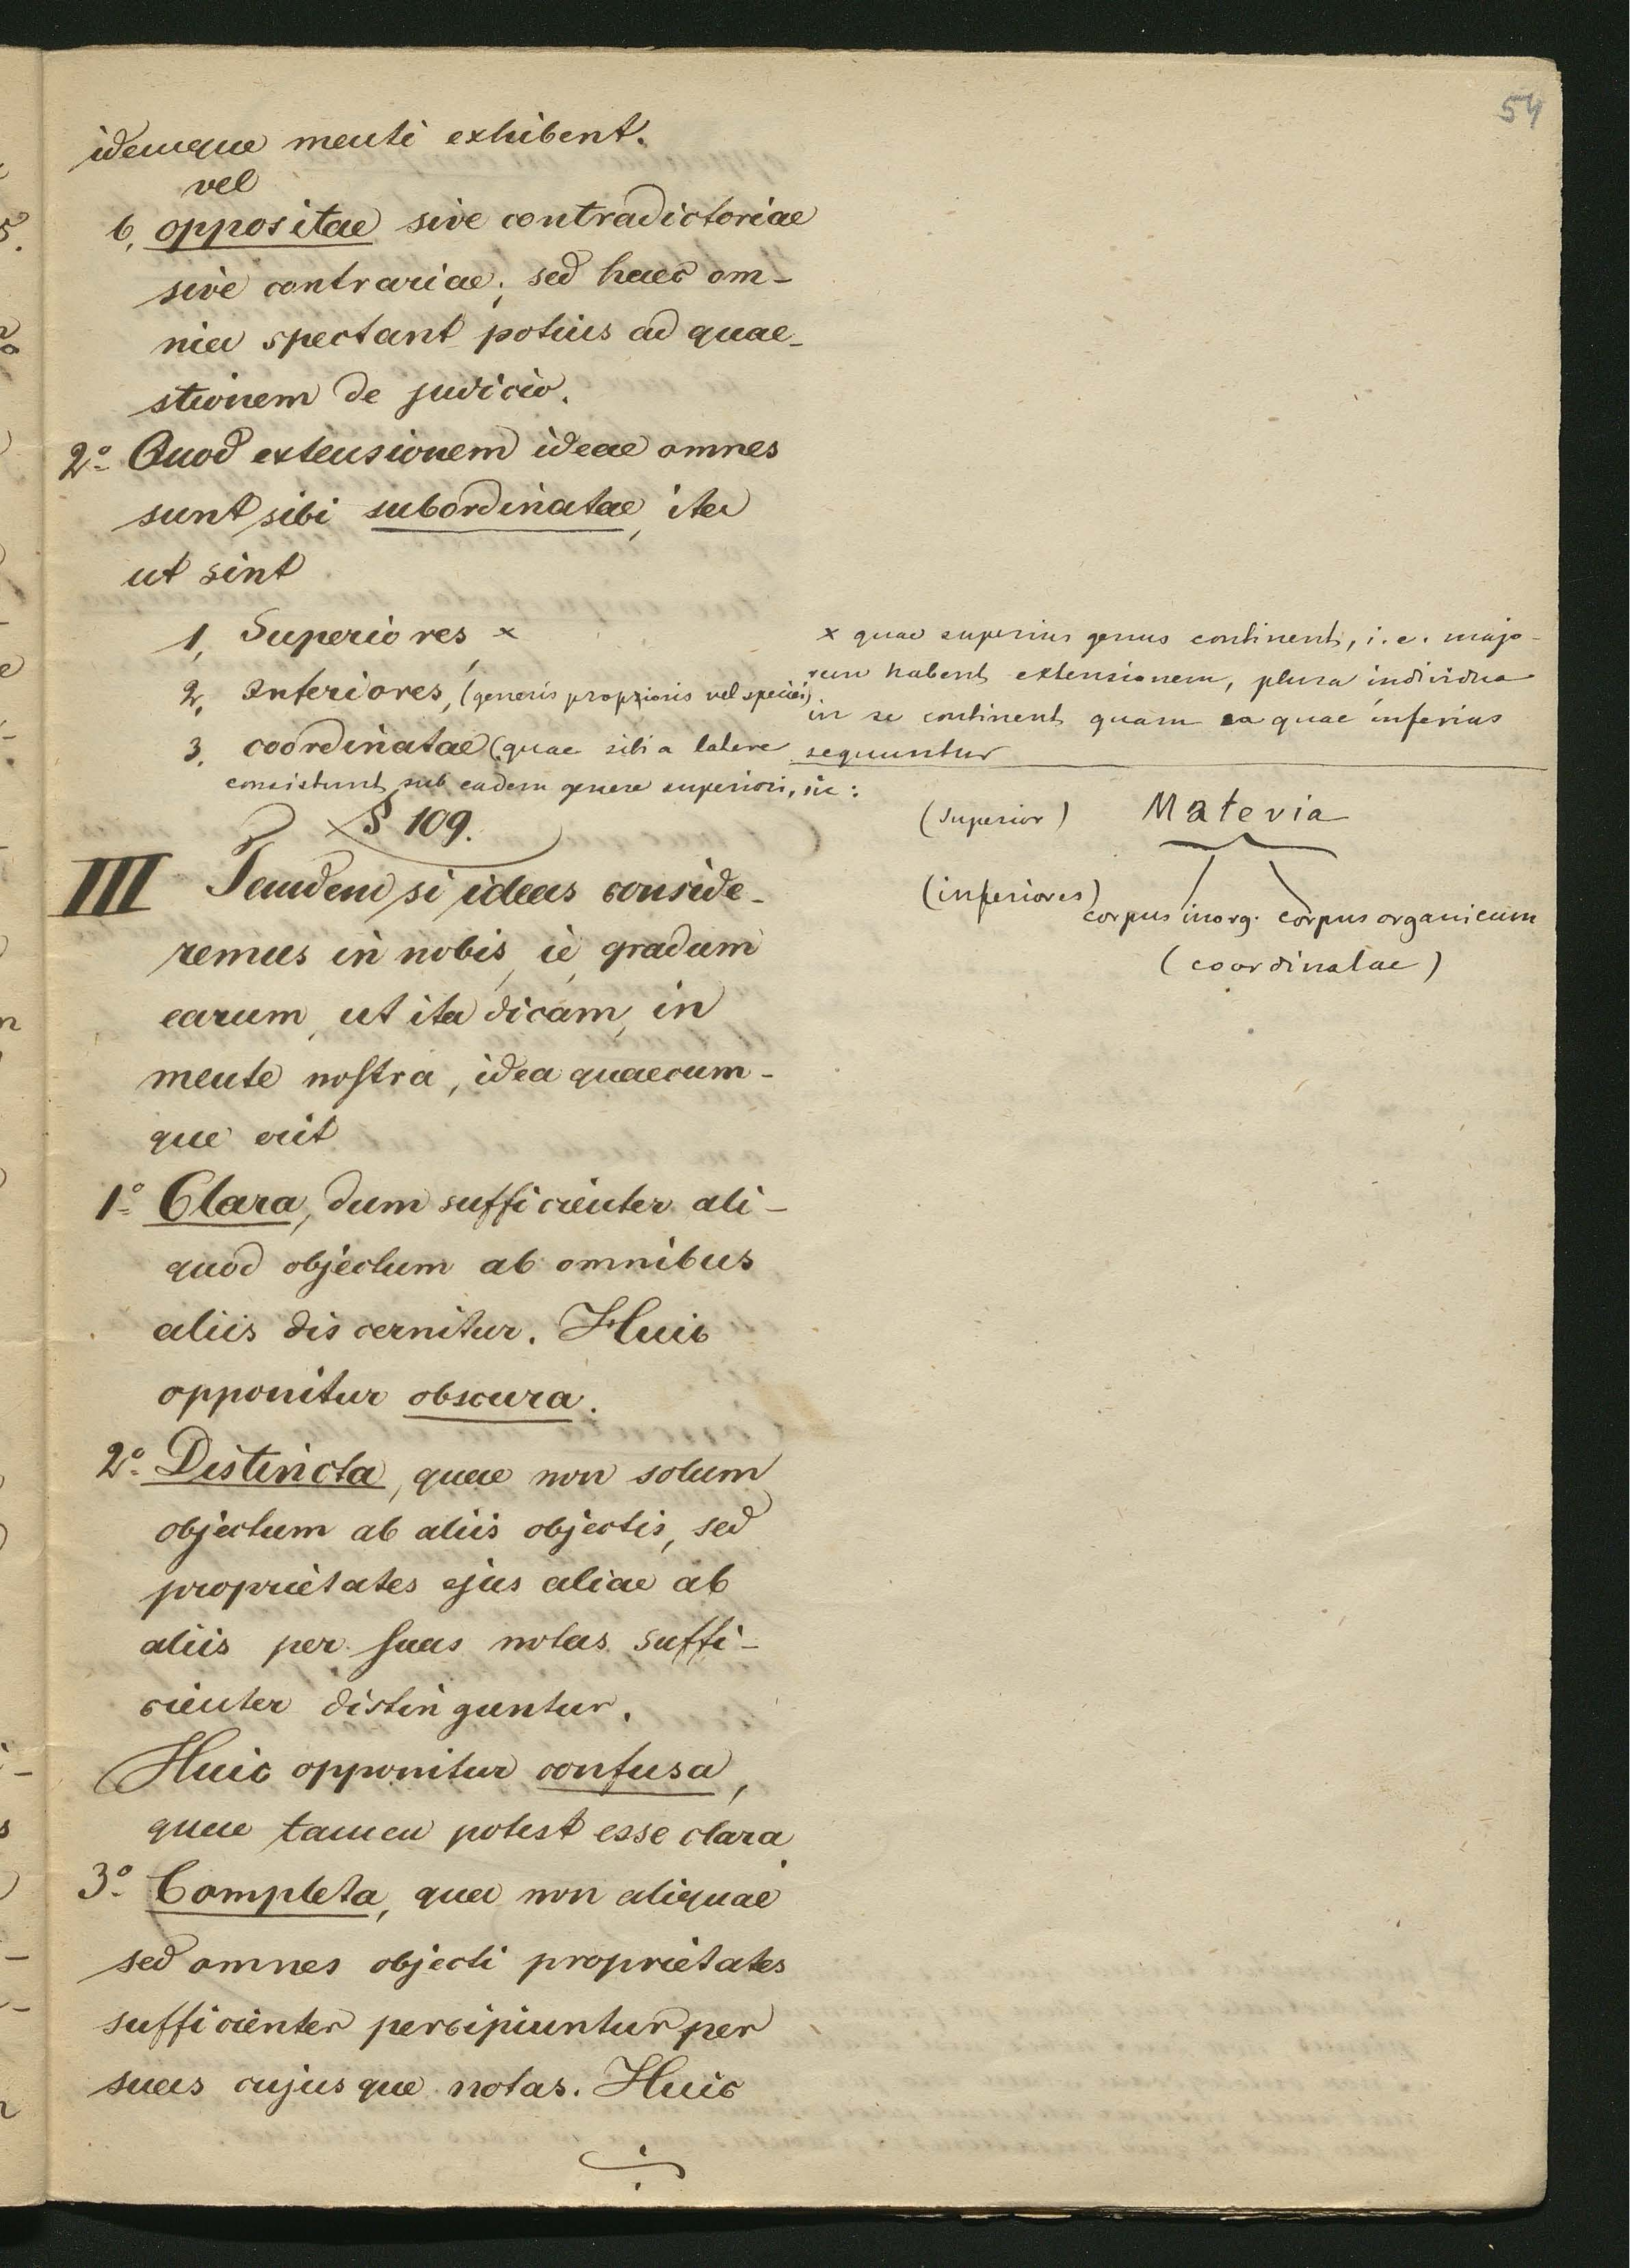 54
idemque menti exhibent.
vel
b, oppositae sive contradictoriae
sive contrariae; sed haec om-
nia spectant potius ad quae-
stionem de judicio.
2º Quod extensionem ideae omnes
sunt sibi subordinatae, ita
ut sint
1, Superiores, x
2, Inferiores, (generis proprioris vel speciei)
3, coordinatae (quae sibi a latere
consistunt sub eadem genere superiori, sic:
x quae superius genus continent, i.e. majo-
rem habent extensionem, plura individua
in se continent quam ea quae inferius
sequuntur
(superior) Materia
(inferiores) corpus inorg. corpus organicum
(coordinatae)
§ 109.
III Tandem si ideas conside-
remus in nobis, ie, gradum
earum, ut ita dicam, in
mente nostra, idea quaecum-
que erit
1º Clara, dum sufficienter ali-
quod objectum ab omnibus
aliis discernitur. Huic
opponitur obscura.
2º Distincta, quae non solum
objectum ab aliis objectis, sed
proprietates ejus aliae ab
aliis per suas notas suffi-
cienter distinguntur.
Huic opponitur confusa,
quae tamen potest esse clara.
3º Completa, qua non aliquae
sed omnes objecti proprietates
sufficienter percipiuntur per
suas cujusque notas. Huic